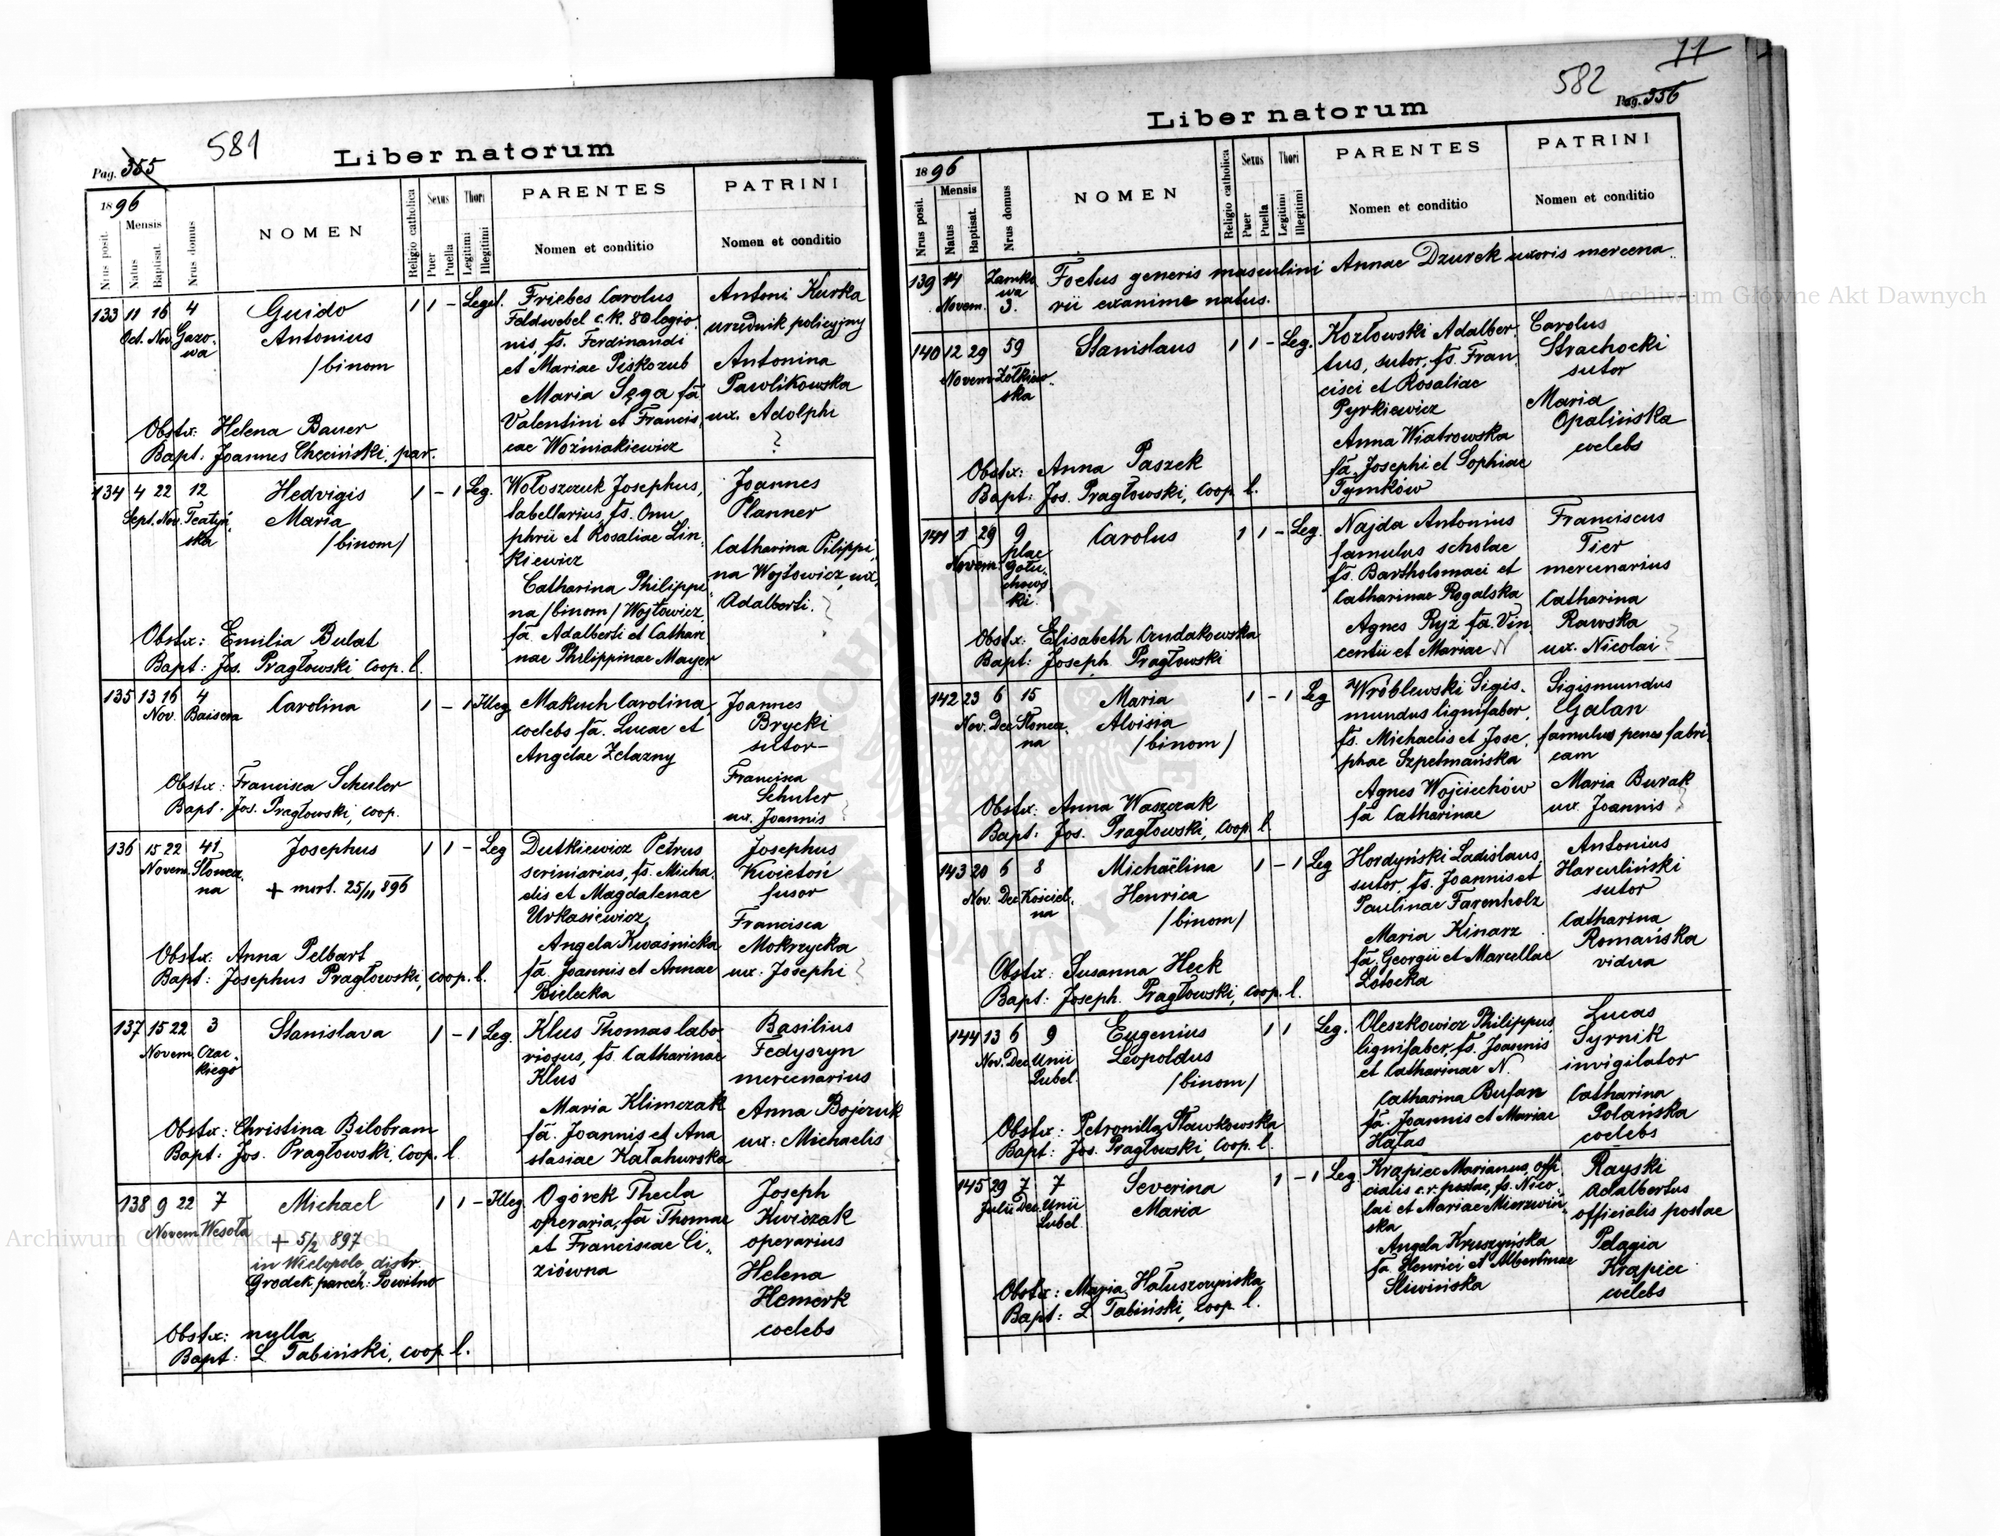 581
Pag. 355
Liber natorum
1896
Nrus posit.
Mensis
Natus
Baptisat.
Nrus domus
NOMEN
Religio catholica
Sexus
Puer
Puella
Thori
Legitimi
Illegitimi
PARENTES
Nomen et conditio
PATRINI
Nomen et conditio
133 11 16 4 Guido 1 1 - Legit. Friebes Carolus Antoni Kurka
Oct. Nov. Gazo- Antonius Feldwebel c.k. 80 legio- urzednik policyjny
wa /binom nis, fs. Ferdinandi Antonina
et Mariae Piskozub Pawlikowska
Maria Sęga fa ux. Adolphi
Valentini et Francis- ?
cae Woźniakiewicz
Obstx: Helena Bauer
Bapt. Joannes Chęciński, par.
134 4 22 12 Hedvigis 1 - 1 Leg. Wołoszczuk Josephus, Joannes
Sept. Nov. Teatyń- Maria labellarius, fs. Onu Planner
ska /binom/ phrii et Rosaliae Lin- Catharina Pilippi-
kiewicz na Wojtowicz, ux,
Catharina Philippi- Adalberti.
na /binom/ Wojtowicz
fa Adalberti et Cathari
nae Philippinae Mayer
Obstx: Emilia Bulat
Bapt: Jos. Pragłowski coop. l.
135 13 16 4 Carolina 1 - 1 Illeg. Makuch Carolina, Joannes
Nov. Baisera coelebs fa. Lucae et Brycki
Angelae Zelazny sutor-
Francisca
Schuler
ux. Joannis
Obstx: Francisca Schuler
Bapt. Jos. Pragłowski, coop.
136 15 22 41 Josephus 1 1 - Leg Dutkiewicz Petrus Josephus
Novem. Słonecz- + mort. 25/11 896 scriniarius, fs. Micha- Kwietoń
na elis et Magdalenae fusor
Urkasiewicz, Francisca
Angela Kwaśnicka Mokrzycka
fa. Joannis et Annae ux: Josephi ?
Bielecka
Obstx: Anna Pelbart
Bapt: Josephus Pragłowski, coop. l.
137 15 22 3 Stanislava 1 - 1 Leg. Klus Thomas labo- Basilius
Novem. Czac- riosus, fs. Catharinae Fedyszyn
kiego Klus mercenarius
Maria Klimczak Anna Bojczuk
fa. Joannis et Ana ux: Michaelis
stasiae Kałahurska
Obstx: Christina Bilobram
Bapt: Jos. Pragłowski, coop. l.
138 9 22 7 Michael 1 1 - Illeg. Ogórek Thecla Joseph
Novem Wesoła + 5/2 897 operaria, fa Thomae Kwiczak
in Wielopolo, distr. et Franciscae Ci- operarius
Grodek, paroch: Powitno ziówna Helena
Hemerk
coelebs
Obstx: nulla
Bapt: L. Tabiński, coop. l.
11
582
Pag. 356
Liber natorum
1896
Nrus posit.
Mensis
Natus
Baptisat.
Nrus domus
NOMEN
Religio catholica
Sexus
Puer
Puella
Thori
Legitimi
Illegitimi
PARENTES
Nomen et conditio
PATRINI
Nomen et conditio
139 14 Zamko Foetus generis masculini Annae Dzurek uxoris mercena-
Novem. wa 3. rii exanime natus.
140 12 29 59 Stanislaus 1 1 - Leg. Kozłowski Adalber- Carolus
Novem Zołkiew- tus, sutor, fs. Fran- Strachocki
ska cisci et Rosaliae sutor
Pyrkiewicz Maria
Anna Wiatrowska Opalińska
fa. Josephi et Sophiae coelebs
Tymków
Obstx: Anna Paszek
Bapt: Jos. Pragłowski, coop. l.
141 1 29 9 Carolus 1 1 - Leg. Najda Antonius Franciscus
Novem. plac famulus scholae Tier
Gołu- fs. Bartholomaei et mercenarius
chows Catharinae Rogalska Catharina
ki. Agnes Ryż fa. Vin Rawska
centii et Mariae N ux. Nicolai ?
Obstx: Elisabeth Czudakowska
Bapt: Joseph. Pragłowski
142 23 6 15 Maria 1 - 1 Leg Wróblewski Sigis- Sigismundus
Nov. Dec Słonecz- Aloisia mundus lignifaber, Galan
na /binom/ fs. Michaelis et Jose- famulus penes fabri-
phae Szpetmańska cam
Agnes Wojciechów Maria Burak
fa Catharinae ux. Joannis ?
Obstx: Anna Waszczak
Bapt: Jos. Pragłowski, coop. l.
143 20 6 8 Michaëlina 1 - 1 Leg Hordyński Ladislaus Antonius
Nov. Dec Kościel- Henrica sutor, fs. Joannis et Harculiński
na /binom/ Paulinae Farenholz sutor
Maria Kinarz Catharina
fa. Georgii et Marcellae Romańska
Łotocka vidua
Obstx: Susanna Heck
Bapt: Joseph. Pragłowski, coop. l.
144 13 6 9 Eugenius 1 1 Leg. Oleszkowicz Philippus Lucas
Nov. Dec Unii Leopoldus lignifaber, fs. Joannis Syrnik
Lubel. /binom/ et Catharinae N. invigilator
Catharina Bufan Catharina
fa. Joannis et Mariae Polańska
Hałas coelebs
Obstx: Petronilla Sławkowska
Bapt: Jos. Pragłowski, coop. l.
145 29 7 7 Severina 1 - 1 Leg. Krapiec Marianus, offi Rayski
Julii Dec. Unii Maria cialis c.r. postae, fs. Nico- Adalbertus
Lubel. lai et Mariae Mierzwiń- officialis postae
ska Pelagia
Angela Kruszyńska Krapiec
fa. Henrici et Albertinae coelebs
Sliwińska
Obstx: Maria Hałuszczyńska
Bapt: L Tabiński, coop. l.
Archiwum Główne Akt Dawnych
Archiwum Główne Akt Dawnych